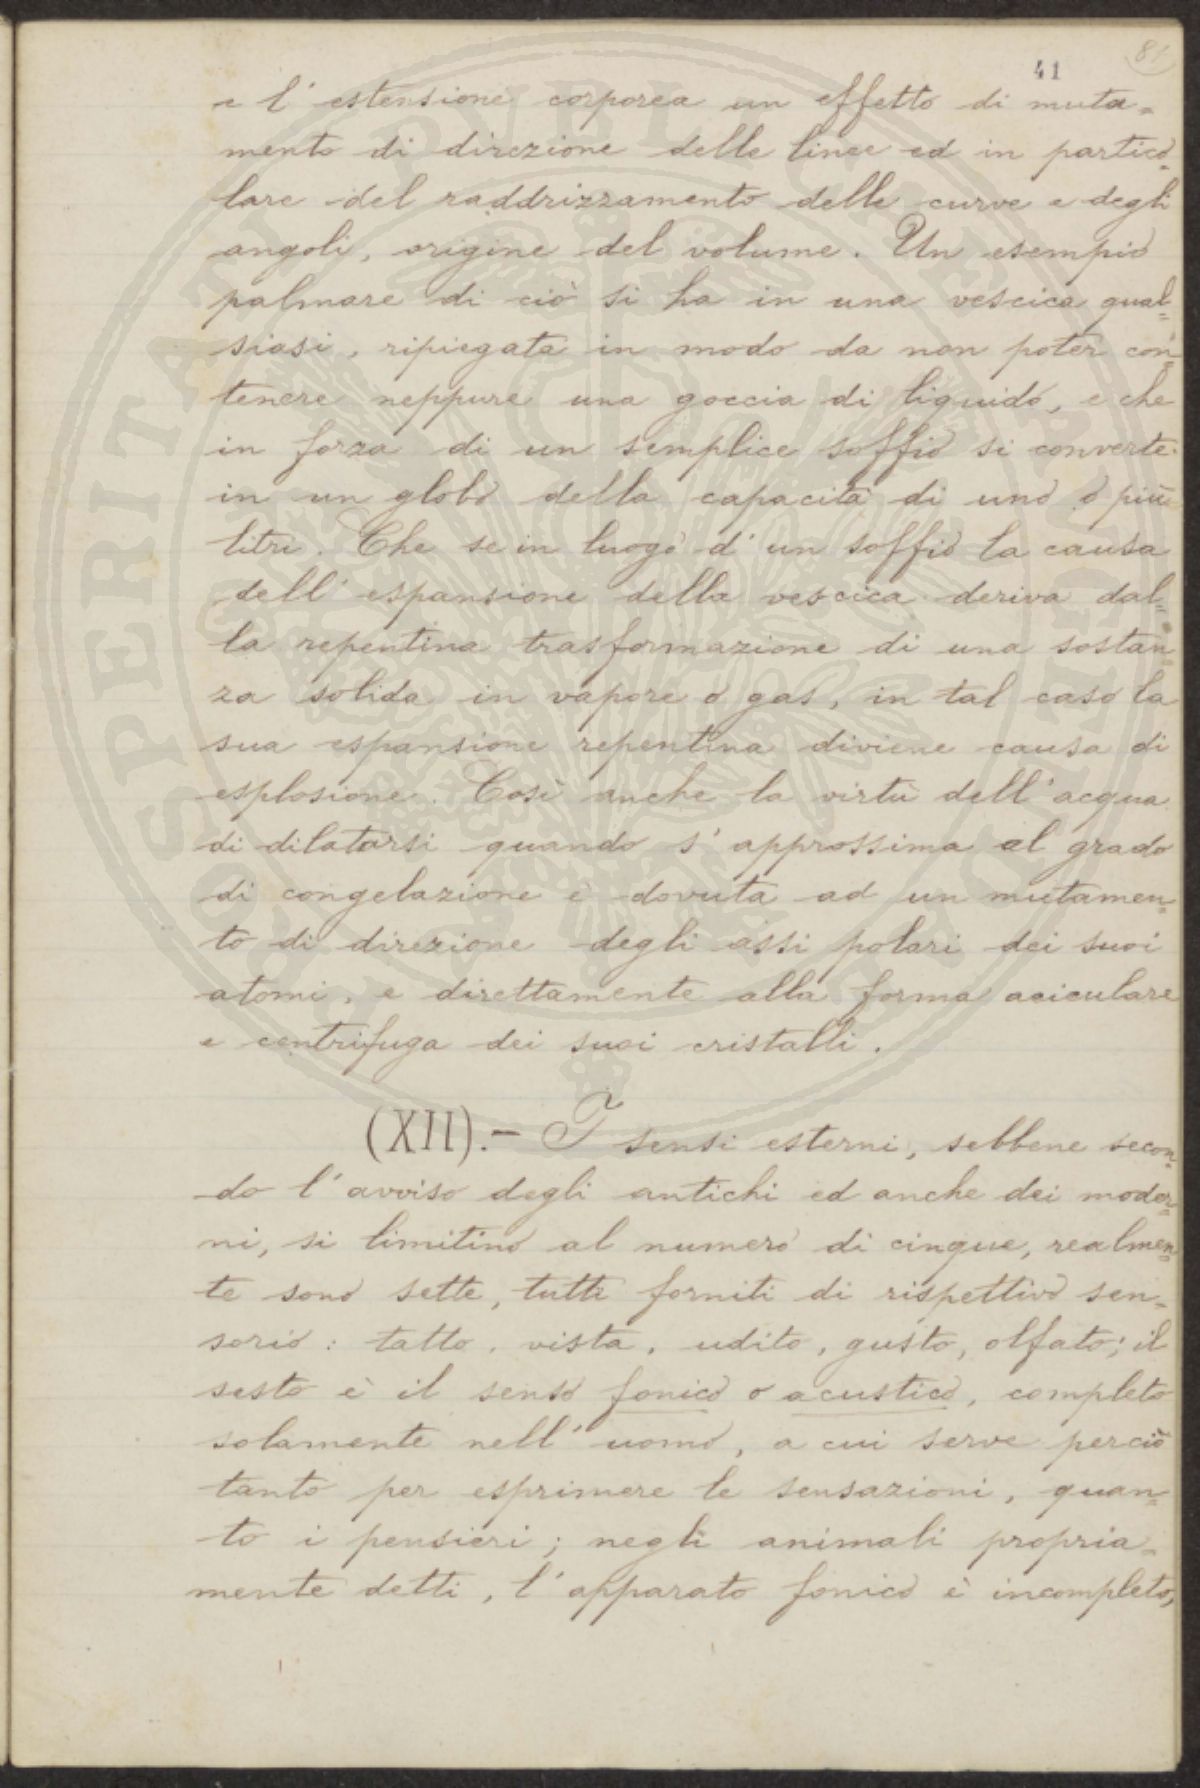 81
41
e l'estensione corporea un effetto di muta=
mento di direzione delle linee ed in partico=
lare del raddrizzamento delle curve e degli
angoli, origine del volume. Un esempio
palmare di ciò si ha in una vescica qual=
siasi, ripiegata in modo da non poter con=
tenere neppure una goccia di liquido, e che
in forza di un semplice soffio si converte
in un globo della capacità di uno o più
litri. Che se in luogo d'un soffio la causa
dell'espansione della vescica deriva dal=
la repentina trasformazione di una sostan=
za solida in vapore o gas, in tal caso la
sua espansione repentina diviene causa di
esplosione. Così anche la virtù dell'acqua
di dilatarsi quando s'approssima al grado
di congelazione è dovuta ad un mutamen=
to di direzione degli assi polari dei suoi
atomi, e direttamente alla forma aciculare
e centrifuga dei suoi cristalli.
(XII).- I sensi esterni, sebbene secon=
do l'avviso degli antichi ed anche dei moder=
ni, si limitino al numero di cinque, realmen=
te sono sette, tutti forniti di rispettivo sen=
sorio: tatto, vista, udito, gusto, olfato; il
sesto è il senso fonico o acustico, completo
solamente nell'uomo, a cui serve perciò
tanto per esprimere le sensazioni, quan=
to i pensieri; negli animali propria=
mente detti, l'apparato fonico è incompleto,
PROSPERITATI PVBLICAE AVGENDAE